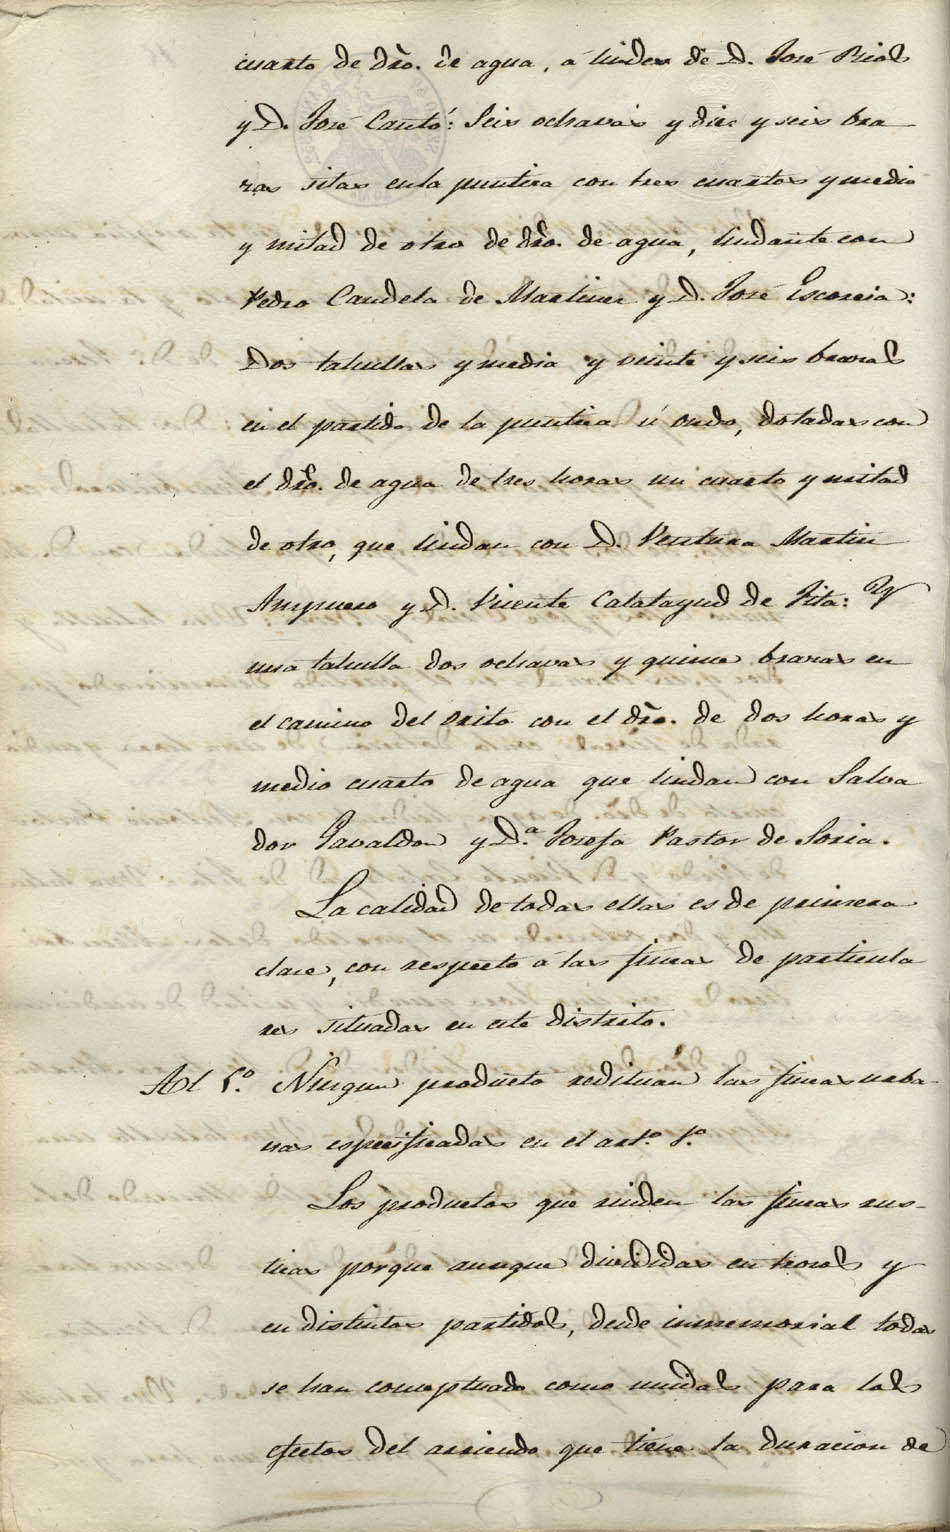 cuarto de dro. de agua, á lindes de D. José Rico
y D. José Cantó: Seis ochavas y diez y seis bra
zas sitas en la puntera con tres cuartos y medio
y mitad de otro de dro. de agua, lindante con
Pedro Candela de Martinez y D. José Escorcia:
Dos tahullas y media y veinte y seis brazas
en el partido de la puntera ú ondo, dotadas con
el dro. de agua de tres horas un cuarto y mitad
de otro, que lindan con D. Ventura Martin
y D. Vicente Calatayud de Pita: Y
una tahulla dos ochavas y quince brazas en
el camino del Orito con el dro. de dos horas y
medio cuarto de agua que lindan con Salva
dor Gavaldon y D.ª Josefa Pastor de Soria.
La calidad de todas ellas es de primera
clase, con respecto á las fincas de particula
res situadas en este distrito.
Al 5.º Ningun producto redituan las fincas urba-
nas especificadas en el art.º 1.º
Los productos que rinden las fincas rus-
ticas porque aunque divididas en trozos y
en distintos partidos, desde inmemorial todas
se han conceptuado como unidas para los
efectos del arriendo que tiene la duracion de